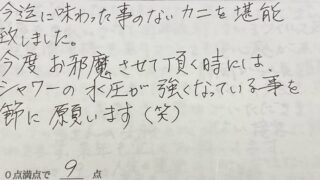 今迄に味わった事のないカニを堪能
致しました。
今度お邪魔させて頂く時には、
シャワーの水圧が強くなっている事を
節に願います(笑)
0点満点で 9 点